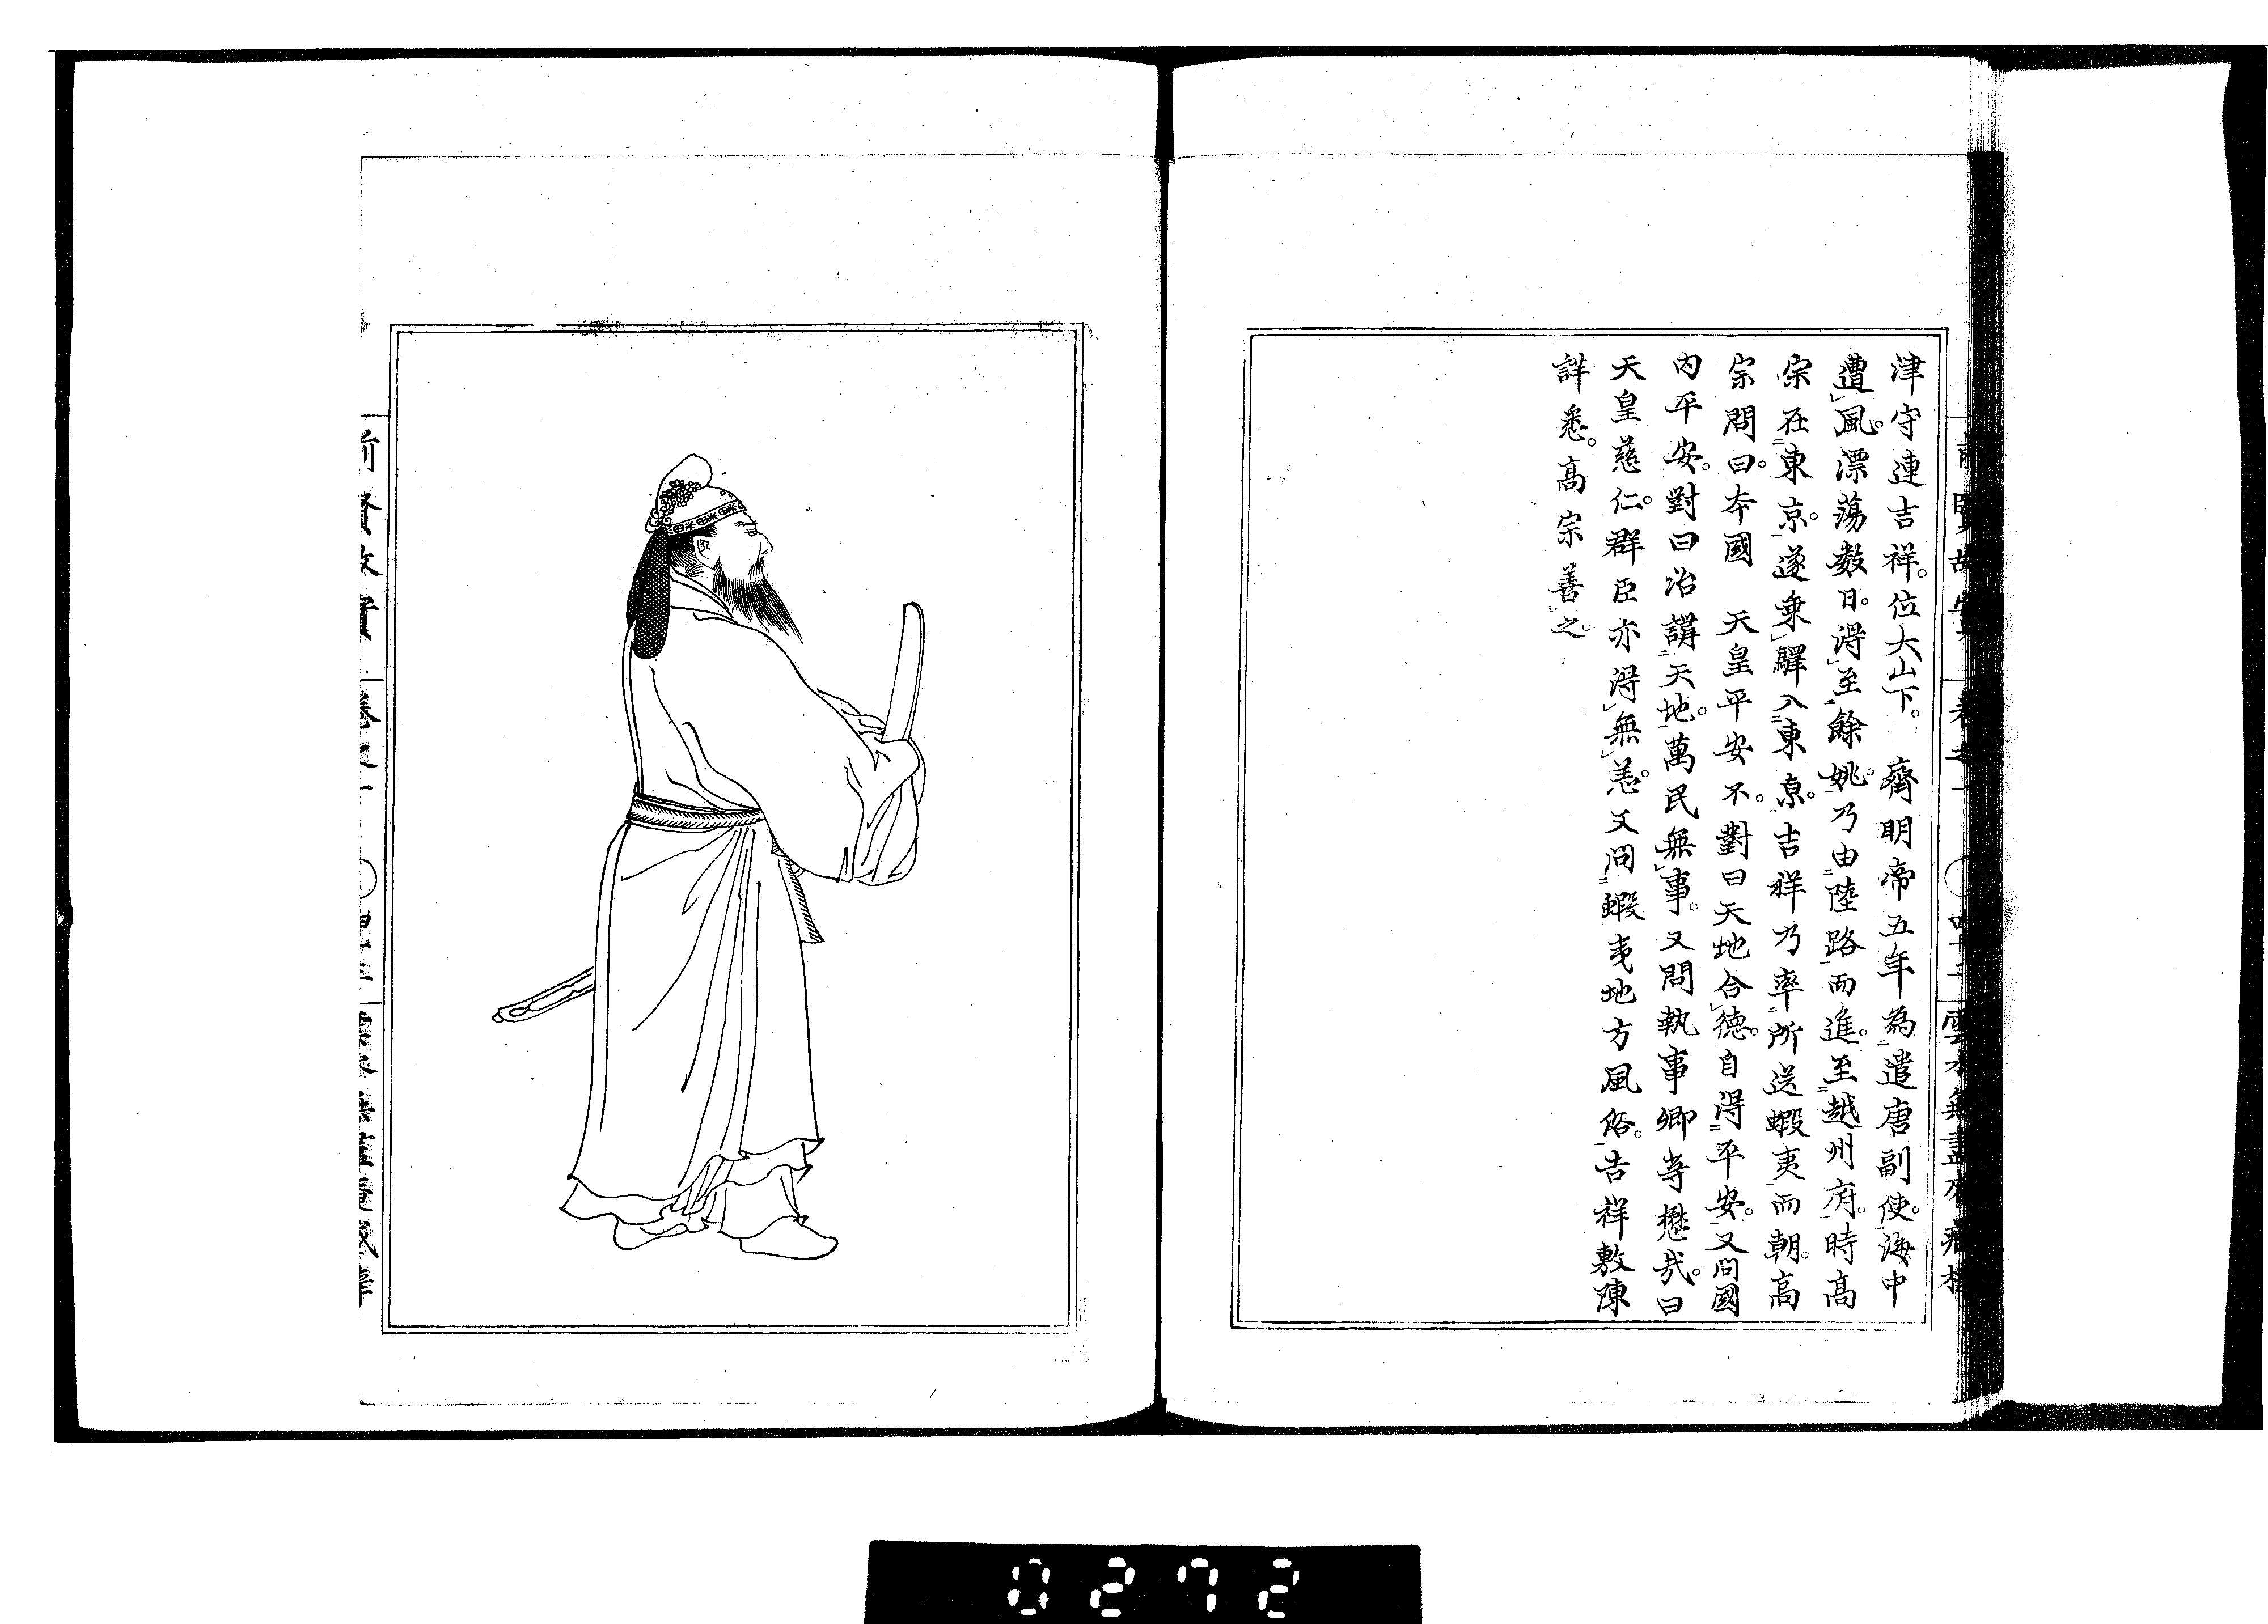 津守連吉祥。位大山下。　齊明帝五年為遣唐副使。海中
遭風。漂蕩數日。得至餘姚。乃由陸路而進。至越州府。時高
宗在東京。遂乗驛入東京。吉祥乃率所送蝦夷而朝。高
宗問曰。本國　天皇平安不。對曰天地合德。自得平安。又問國
内平安。對曰治謂天地。萬民無事。又問執事卿等懋哉。曰
天皇慈仁。群臣亦得無恙。又问蝦夷地方風俗。吉祥敷陳
詳悉。高宗善之
0272